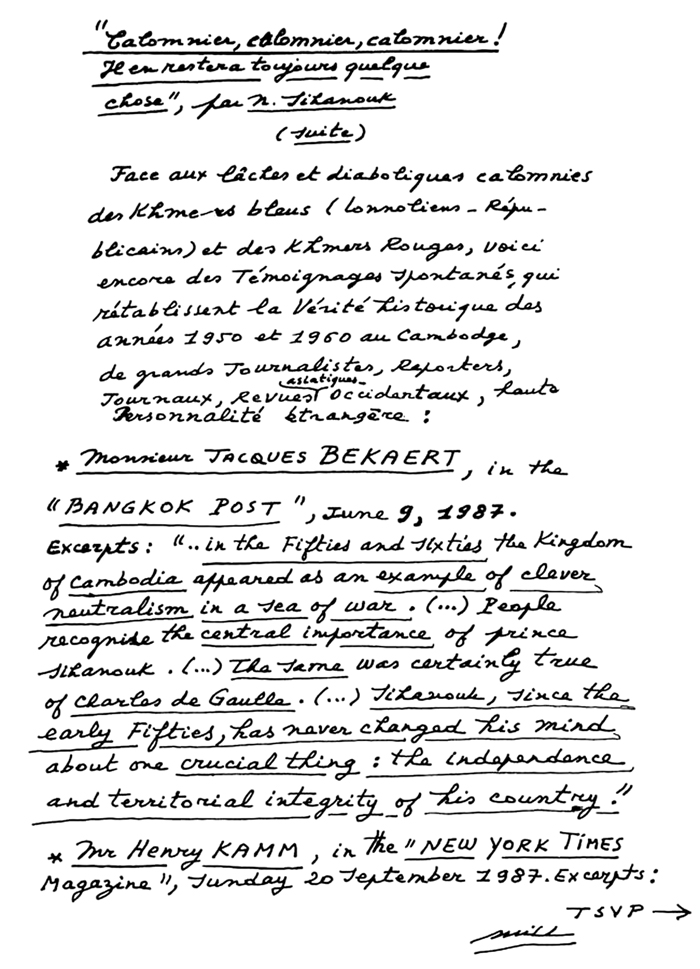 "Calomnier, calomnier, calomnier !
Il en restera toujours quelque
chose", par N. Sihanouk
(suite)
Face aux lâches et diaboliques calomnies
des Khmers bleus (lonnoliens - Répu-
blicains) et des Khmers Rouges, voici
encore des Témoignages spontanés, qui
rétablissent la Vérité historique des
années 1950 et 1960 au Cambodge,
de grands Journalistes, Reporters,
asiatiques -
Journaux, Revues Occidentaux, haute
Personnalité étrangère :
* Monsieur JACQUES BEKAERT, in the
"BANGKOK POST", June 9, 1987.
Excerpts : ".. in the Fifties and sixties the Kingdom
of Cambodia appeared as an example of clever
neutralism in a sea of war . (...) People
recognise the central importance of prince
Sihanouk . (...) The same was certainly true
of Charles de Gaulle . (...) Sihanouk, since the
early Fifties, has never changed his mind
about one crucial thing : the independence
and territorial integrity of his country."
* Mr Henry KAMM, in the "NEW YORK TIMES
Magazine", Sunday 20 September 1987. Excerpts :
TSVP →